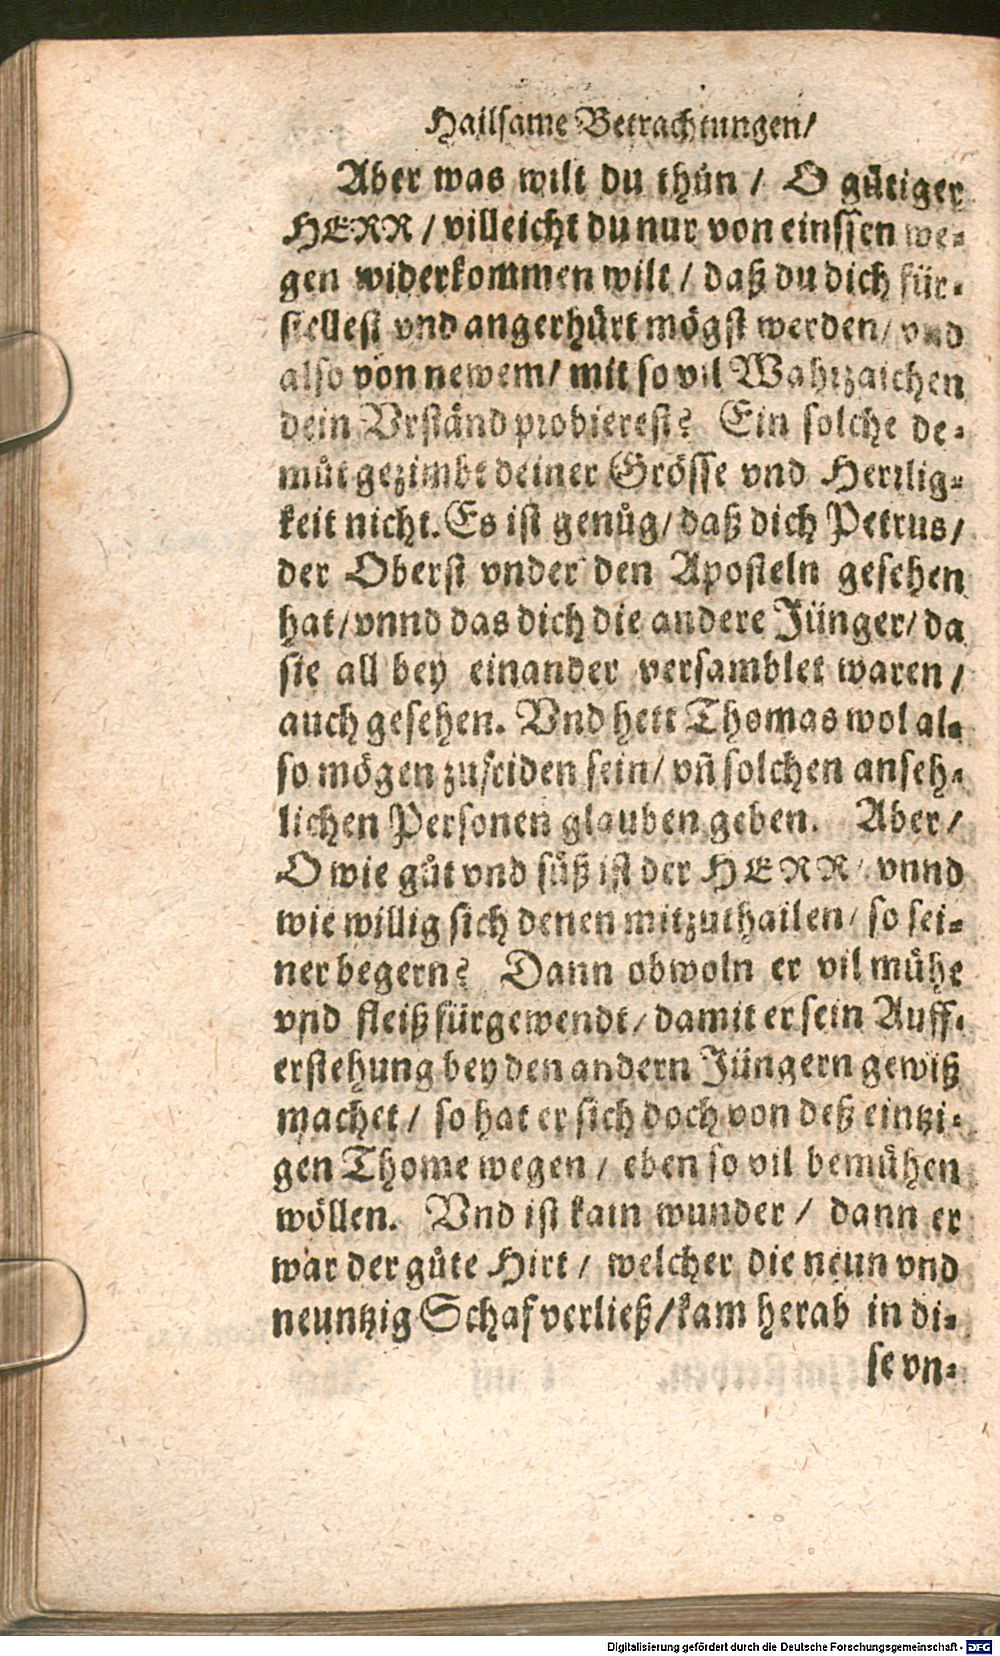 Hailsame Betrachtungen/
Aber was wilt du thůn / O gůtiger
HERR / villeicht du nur von einssen we-
gen widerkommen wilt / daß du dich für-
stellest vnd angerhůrt mögst werden / vnd
also von newem / mit so vil Wahrzaichen
dein Vrständ probierest? Ein solche de-
můt gezimbt deiner Grösse vnd Herrlig-
keit nicht. Es ist genůg / daß dich Petrus /
der Oberst vnder den Aposteln gesehen
hat / vnnd das dich die andere Jünger / da
sie all bey einander versamblet waren /
auch gesehen. Vnd hett Thomas wol al-
so mögen zufriden sein / vñ solchen anseh-
lichen Personen glauben geben. Aber /
O wie gůt vnd sůß ist der HERR / vnnd
wie willig sich denen mitzuthailen / so sei-
ner begern? Dann obwoln er vil můhe
vnd fleiß fürgewendt / damit er sein Auff-
erstehung bey den andern Jüngern gewiß
machet / so hat er sich doch von deß eintzi-
gen Thome wegen / eben so vil bemůhen
wöllen. Vnd ist kain wunder / dann er
war der gůte Hirt / welcher die neun vnd
neuntzig Schaf verließ / kam herab in di-
se vn-
Digitalisierung gefördert durch die Deutsche Forschungsgemeinschaft - DFG